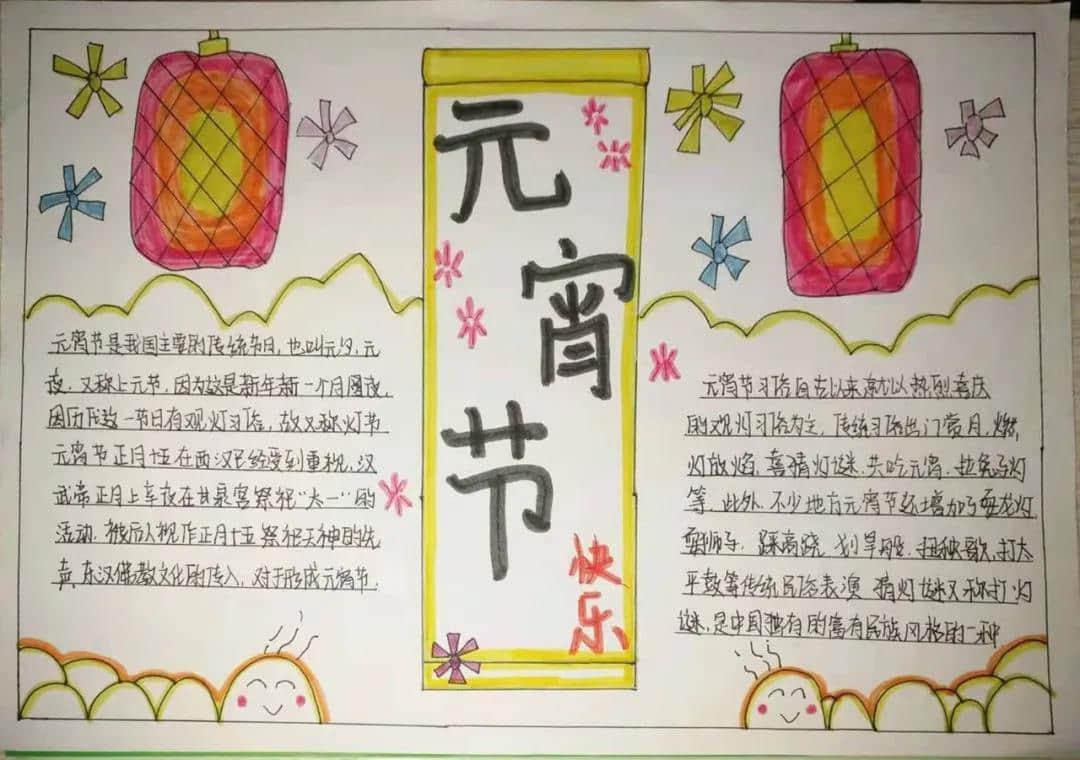 元宵节
快乐
元宵节是我国主要的传统节日，也叫元夕、元
夜，又称上元节，因为这是新年第一个月圆夜
因历代这一节日有观灯习俗，故又称灯节
元宵节正月十五在西汉已经受到重视，汉
武帝正月上辛夜在甘泉宫祭祀“太一”的
活动，被后人视作正月十五祭祀天神的先
声，东汉佛教文化的传入，对于形成元宵节
元宵节习俗自古以来就以热烈喜庆
的观灯习俗为主，传统习俗出门赏月，燃
灯放焰，喜猜灯谜，共吃元宵，拉兔子灯
等，此外，不少地方元宵节还增加了耍龙灯，
耍狮子，踩高跷，划旱船，扭秧歌，打太
平鼓等传统民俗表演 猜灯谜又称打灯
谜，是中国独有的富有民族风格的一种